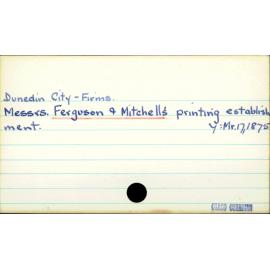 Dunedin City - Firms.
Messrs. Ferguson & Mitchell's printing establish
ment. Y: Mr.17,1875